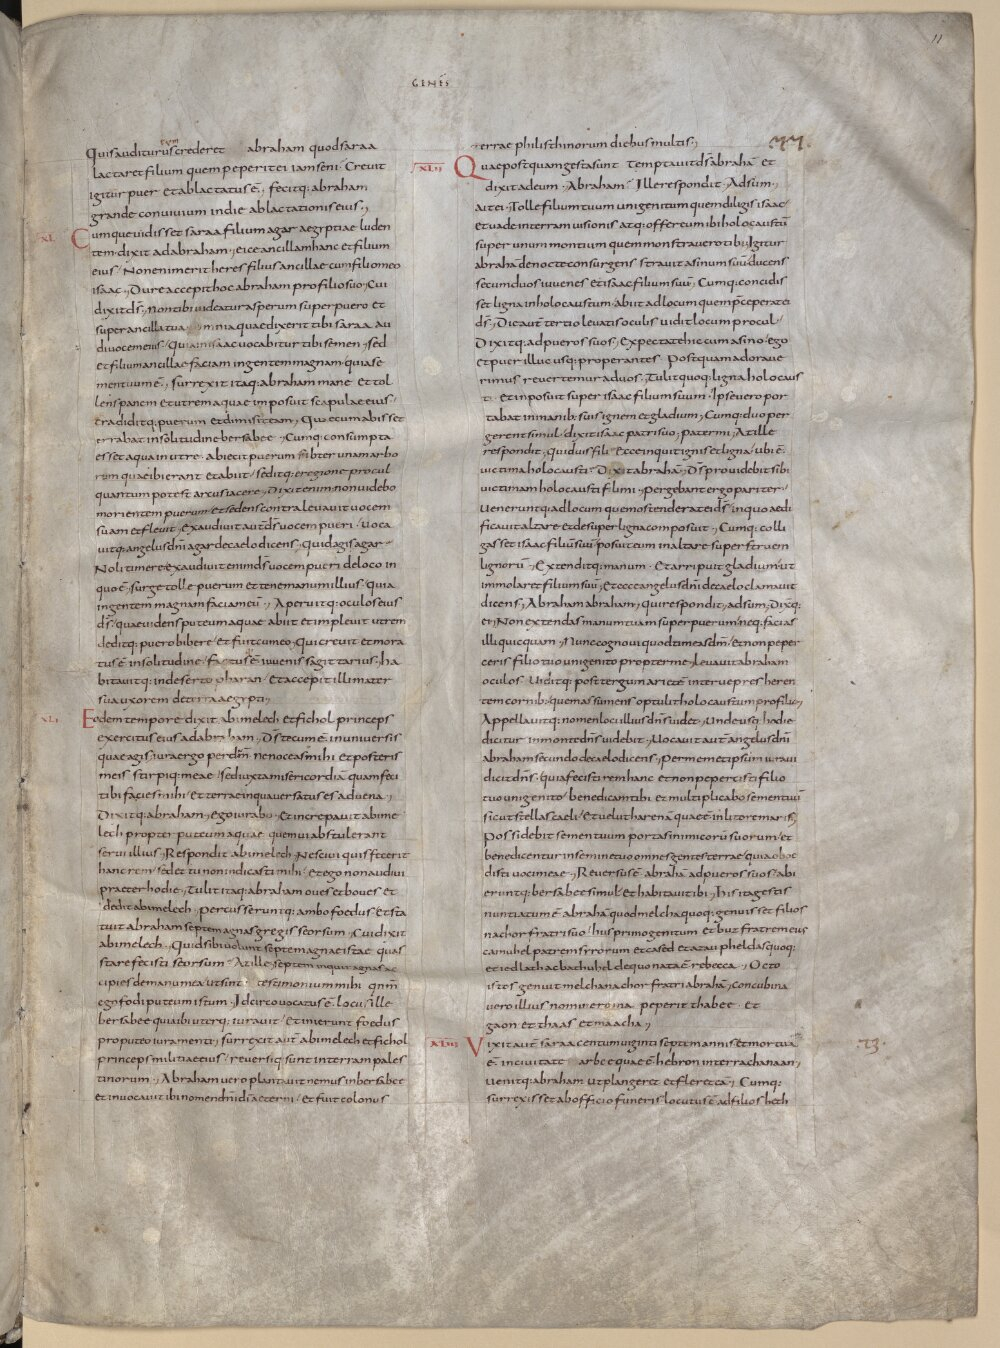 11
GENES
Quis auditurus crederet abraham quod saraa
lactaret filium quem peperit ei iam seni · Crevit
igitur puer et ablactatus ē, fecitq; abraham
grande convivium in die ablactationis eius,
XL Cumque vidisset saraa filium agar aegyptiae luden
tem dixit ad abraham, eice ancillam hanc et filium
eius / Non enim erit heres filius ancillae cum filio meo
isaac, Dure accepit hoc abraham pro filio suo, Cui
dixit ds, non tibi videatur asperum super puero et
super ancilla tua, omnia quae dixerit tibi saraa au
di vocem eius / Quia in isaac vocabitur tibi semen, sed
et filium ancillae faciam in gentem magnam quia se
men tuum ē, surrexit itaq; abraham mane et tol
lens panem et utrem aquae imposuit scapulae eius /
tradiditq; puerum et dimisit eam, Quae cum abisset
errabat in solitudine bersabee, Cumq; consumpta
esset aqua in utre, abiecit puerum subter unam arbo
rum quae ibi erant et abiit, seditq; e regione procul
quantum potest arcus iacere, Dixit enim non videbo
morientem puerum et sedens contra levavit vocem
suam et flevit, Exaudivit aut ds vocem pueri / Voca
vitq; angelus dni agar de caelo dicens, Quid agis agar
Noli timere, exaudivit enim ds vocem pueri de loco in
quo ē, surge tolle puerum et tene manum illius / quia
in gentem magnam faciam eū, Aperuitq; oculos eius
ds, quae videns puteum aquae abiit et implevit utrem
deditq; puero bibere / Et fuit cum eo, Qui crevit et mora
tus ē in solitudine / Factus ē iuvenis sagittarius, ha
bitavitq; in deserto pharan / Et accepit illi mater
sua uxorem de terra aegypti,
XLI Eodem tempore dixit abimelech et fichol princeps
exercitus eius ad abraham, Ds tecum ē in universis
quae agis, iura ergo per dm̄ ne noceas mihi et posteris
meis stirpiq; meae / sed iuxta misericordiā quam feci
tibi facies mihi / Et terrae in qua versatus es advena,
Dixitq; abraham, ego iurabo / Et increpavit abime
lech propter puteum aquae quem vi abstulerant
servi illius, Respondit abimelech, Nescivi quis fecerit
hanc rem, sed et tu non indicasti mihi / Et ego non audivi
praeter hodie, Tulit itaq; abraham oves et boves et
dedit abimelech, percusseruntq; ambo foedus / Et sta
tuit abraham septem agnas gregis seorsum, Cui dixit
abimelech, Quid sibi volunt septem agnae istae quas
stare fecisti seorsum, At ille, septem inquit agnas ac
cipies de manu mea ut sint testimonium mihi qnm
ego fodi puteum istum, Idcirco vocatus ē locus ille
bersabee quia ibi uterq; iuravit / Et inierunt foedus
pro puteo iuramenti, surrexit aut abimelech et fichol
princeps militiae eius / reversiq; sunt in terram pales
tinorum, Abraham vero plantavit nemus in bersabee
et invocavit ibi nomen dn̄i dī aeterni / Et fuit colonus
terrae philisthinorum diebus multis,
XLII Quae postquam gesta sunt temptavit ds abrahā et
dixit ad eum, Abraham, Ille respondit, Adsum,
ait ei, Tolle filium tuum unigenitum quem diligis isaac /
et vade in terram visionis atq; offer eum ibi holocaustū
super unum montium quem monstravero tibi, Igitur
abrahā de nocte consurgens stravit asinum suū / ducens
secum duos iuvenes et isaac filium suū, Cumq; concidis
set ligna in holocaustum, abiit ad locum quem pceperat ei
ds, Die aut tertio levatis oculis vidit locum procul /
Dixitq; ad pueros suos, Expectate hic cum asino, ego
et puer illuc usq; properantes / Postquam adorave
rimus revertemur ad vos, Tulit quoq; ligna holocaus
ti / et inposuit super isaac filium suum, Ipse vero por
tabat in manib; suis ignem et gladium, Cumq; duo per
gerent simul / dixit isaac patri suo, Pater mi, At ille
respondit, Quid vis fili, Ecce inquit ignis et ligna / ubi ē
victima holocausti, Dixit abrahā, Ds providebit sibi
victimam holocausti fili mi, Pergebant ergo pariter /
Veneruntq; ad locum quem ostenderat ei ds, in quo aedi
ficavit altare et desuper ligna composuit, Cumq; colli
gasset isaac filiū suū / posuit eum in altare super struem
lignorū, Extenditq; manum / Et arripuit gladium / ut
immolaret filium suū, Et ecce angelus dni de caelo clamavit
dicens, Abraham abraham, Qui respondit, adsum, Dixq;
ei, Non extendas manum tuam super puerum / neq; facias
illi quicquam, Nunc cognovi quod timeas dm̄, Et non peper
ceris filio tuo unigenito propter me, Levavit abraham
oculos / Viditq; post tergum arietē inter vepres heren
tem cornib; quem assumens optulit holocaustum pro filio,
Appellavitq; nomen loci illius dn̄s videt, Unde usq; hodie
dicitur in monte dn̄s videbit, Vocavit aut angelus dni
abraham secundo de caelo dicens, Per memetipsum iuravi
dicit dn̄s, Quia fecisti rem hanc et non pepercisti filio
tuo unigenito / benedicam tibi et multiplicabo semen tuū
sicut stellas caeli, Et velut harenā quae ē in litore maris,
Possidebit semen tuum portas inimicorū suorum / et
benedicentur in semine tuo omnes gentes terrae / quia oboe
disti voci meae, Reversus ē abrahā ad pueros suos / abi
eruntq; bersabee simul / Et habitavit ibi, his ita gestis
nuntiatum ē abrahā quod melcha quoq; genuisset filios
nachor fratri suo / hus primogenitum et buz fratrem eius
camuhel patrem sirorum et cased et azau pheldas quoq;
et iedlath ac bathuhel de quo nata ē rebecca, Octo
istos genuit melcha nachor fratri abrahā, concubina
vero illius nomine roma peperit thabee · et
gaon et thaas et maacha,
XLIII Vixit autē saraa centum viginti septē annis et mortua
ē in civitate arbee quae ē hebron in terra chanaan,
Venitq; abraham ut plangeret et fleret eā, Cumq;
surrexisset ab officio funeris locutus ē ad filios heth